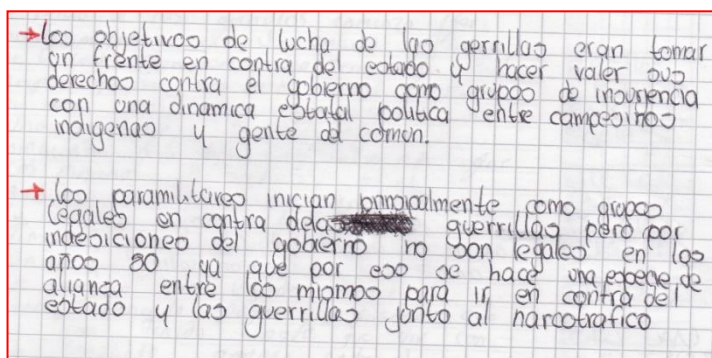 → los objetivos de lucha de las gerrillas eran tomar
un frente en contra del estado y hacer valer sus
derechos contra el gobierno como grupos de insuriencia
con una dinamica estatal politica entre campesinos
indigenas y gente del comun.
→ los paramilitares inician principalmente como grupos
legales en contra delas guerrillas pero por
indesiciones del gobierno no son legales en los
años 80 ya que por eso se hace una especie de
alianza entre los mismos para ir en contra del
estado y las guerrillas junto al narcotrafico